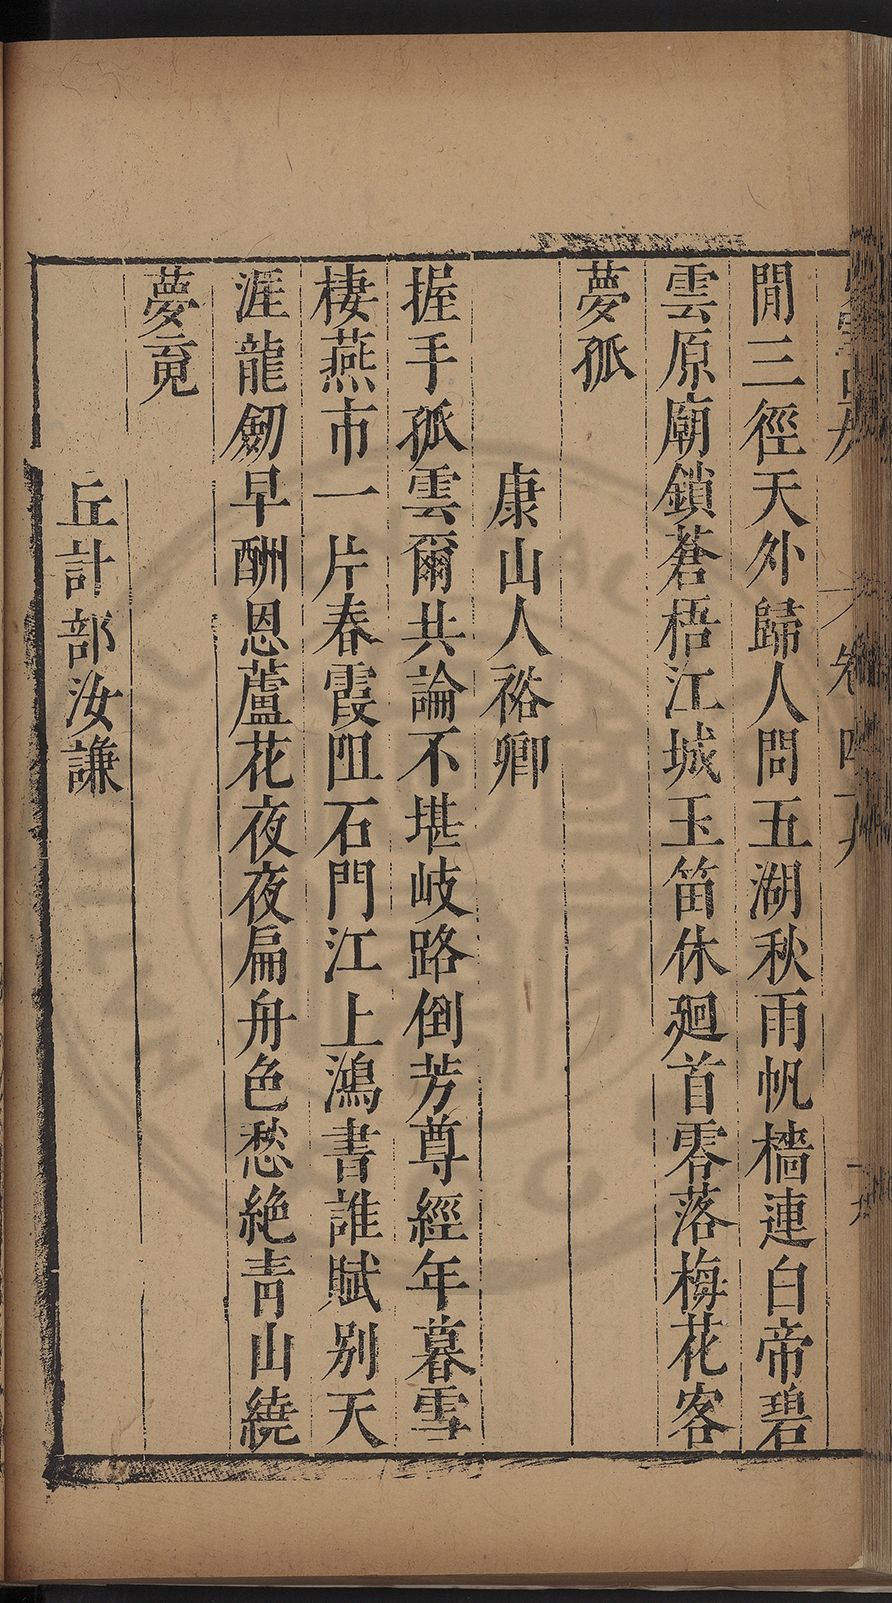 閒三徑天外歸人問五湖秋雨帆檣連白帝碧
雲原廟鎖蒼梧江城玉笛休廻首零落梅花客
夢孤
康山人裕卿
握手孤雲爾共論不堪岐路倒芳尊經年暮雪
棲燕市一片春霞阻石門江上鴻書誰賦別天
涯龍劒早酬恩蘆花夜夜扁舟色愁絶青山繞
夢竟
丘計部汝謙